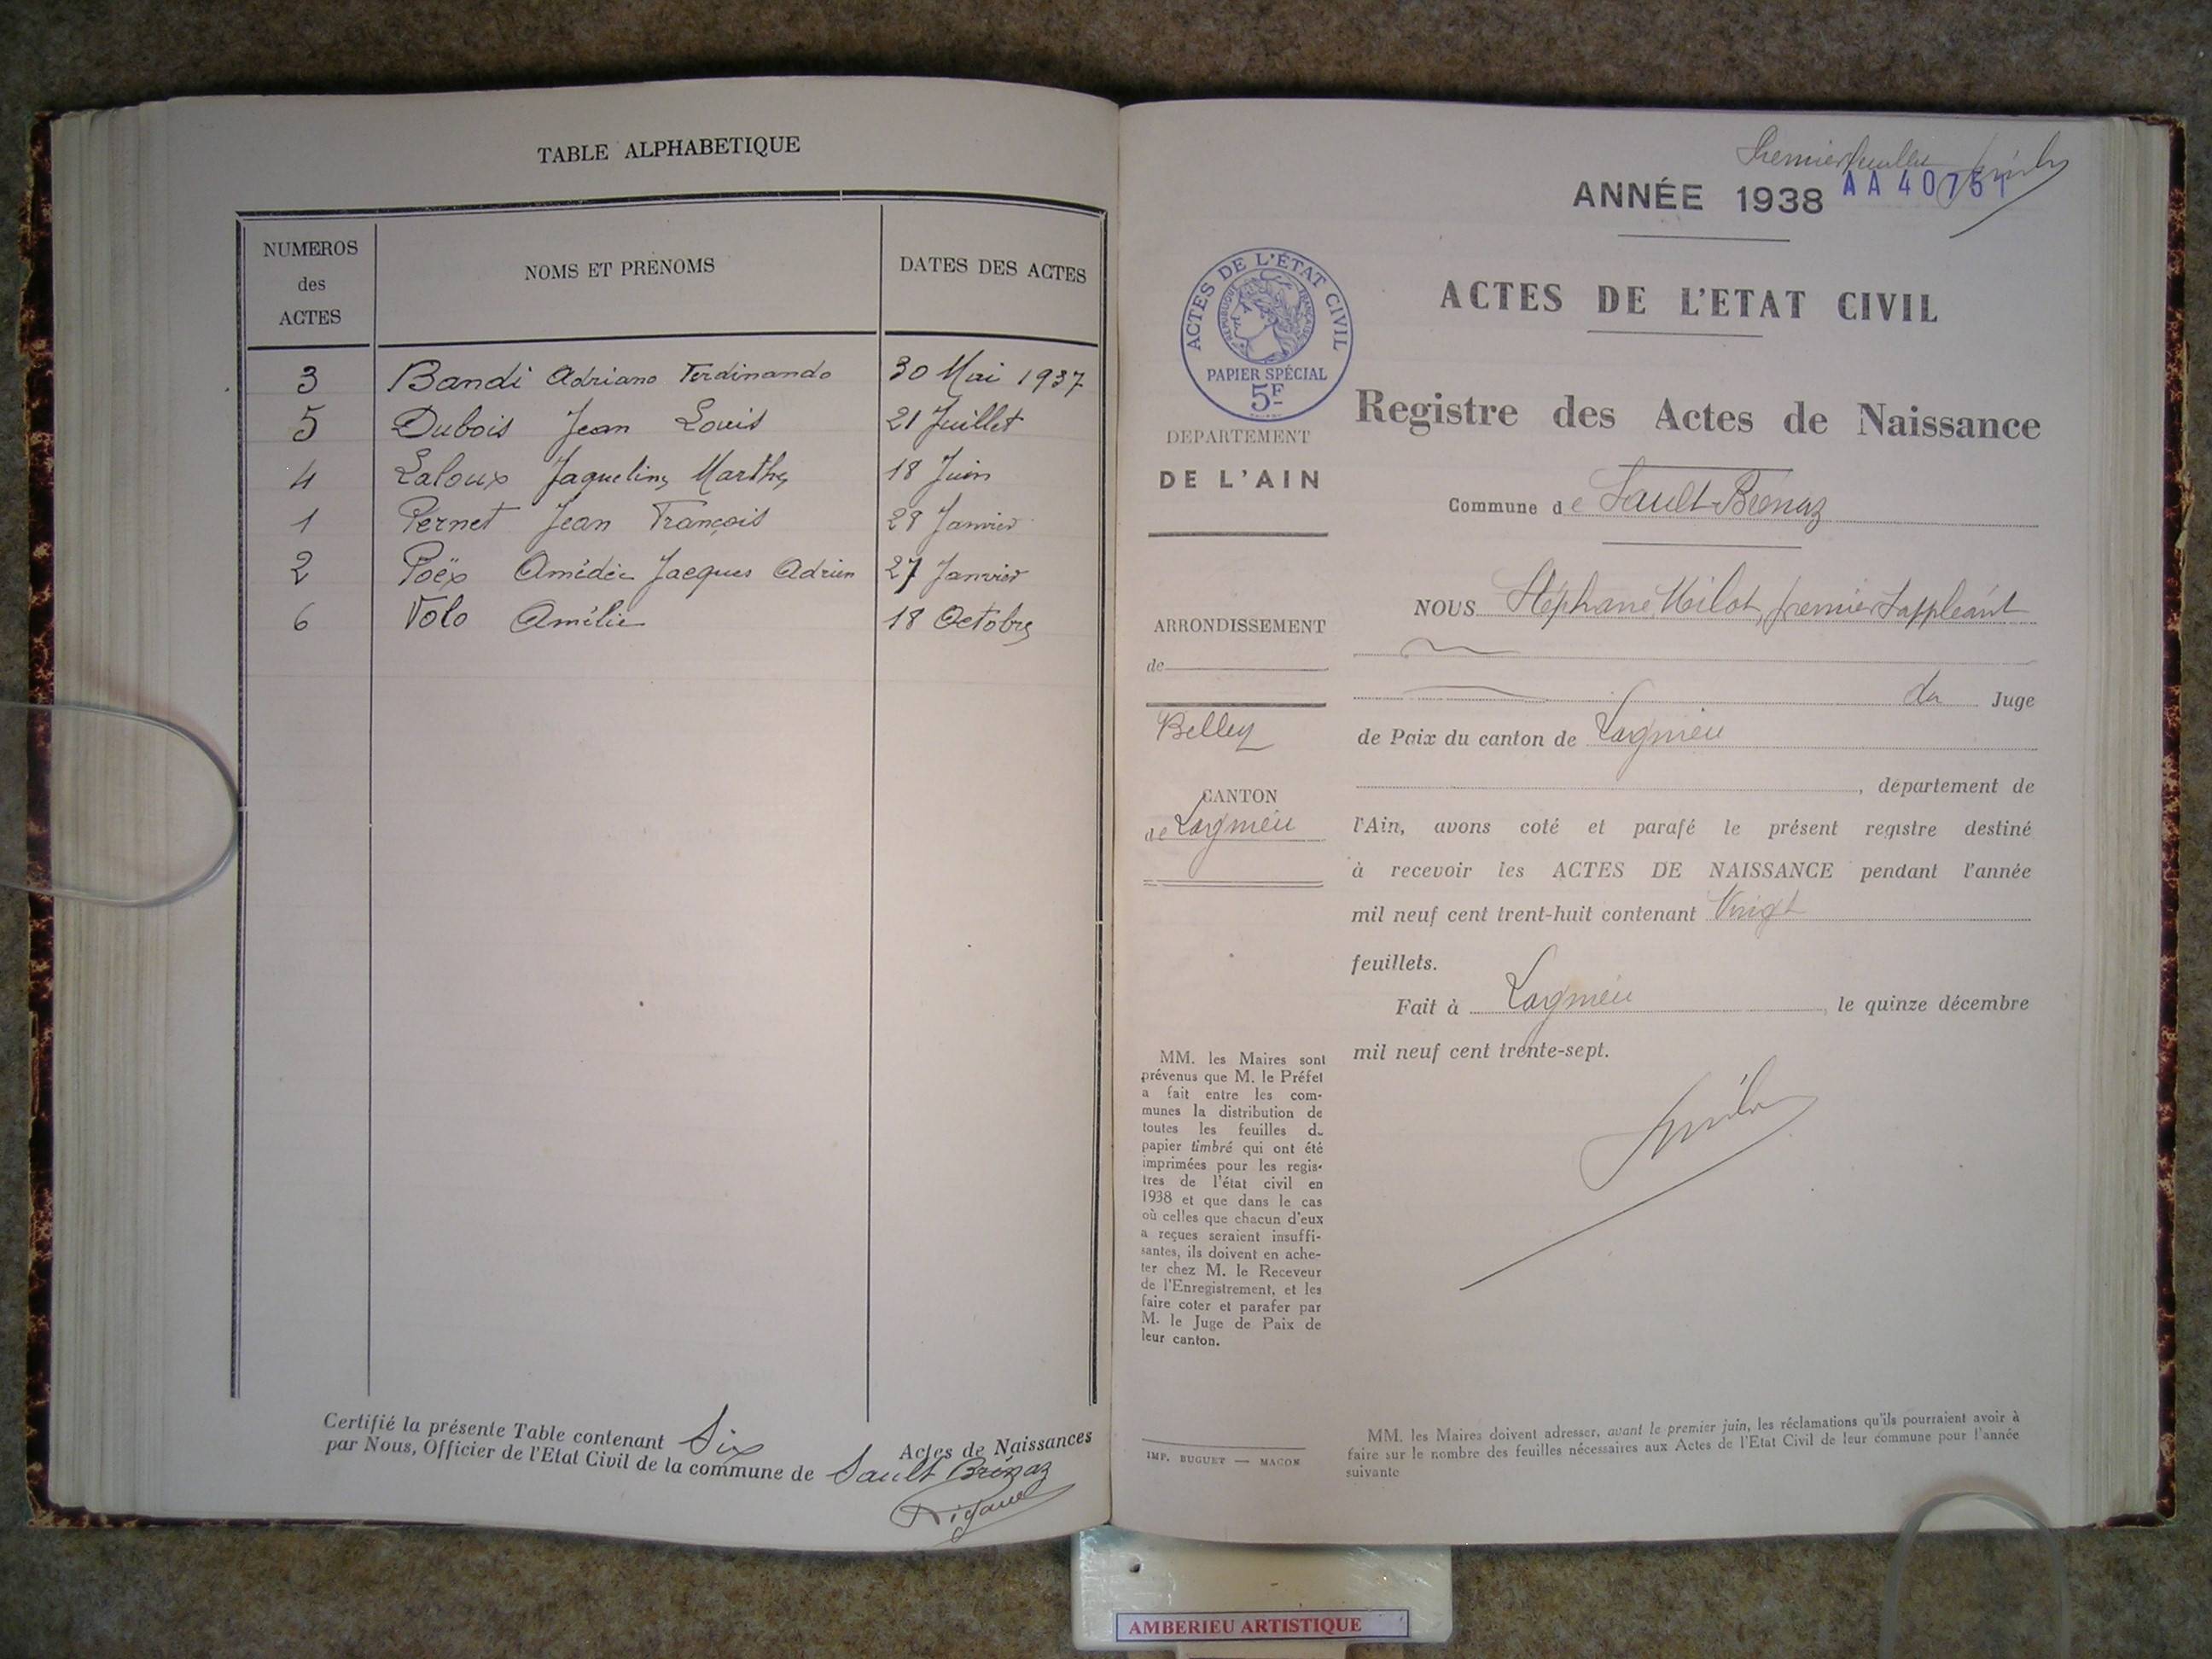 TABLE ALPHABETIQUE
NUMEROS des ACTES
NOMS ET PRENOMS
DATES DES ACTES
3 Bandi Adriano Ferdinando 30 Mai 1937
5 Dubois Jean Louis 21 Juillet
4 Laloux Jaqueline Marthe 18 Juin
1 Pernet Jean François Janvier
2 Poëx Amédée Jacques Adrien 27 Janvier
6 Volo Amélie 18 Octobre
Certifié la présente Table contenant Six Actes de Naissances
par Nous, Officier de l'Etat Civil de la commune de Sault Brénaz
Premier feuillet
ANNÉE 1938
AA 40751
ACTES DE L'ÉTAT CIVIL
RÉPUBLIQUE FRANÇAISE
PAPIER SPÉCIAL
5F
ACTES DE L'ETAT CIVIL
Registre des Actes de Naissance
DEPARTEMENT
DE L'AIN
Commune de Sault-Brénaz
ARRONDISSEMENT
de
Belley
CANTON
de Lagnieu
NOUS Stéphane Milot, premier suppléant
du Juge
de Paix du canton de Lagnieu
, département de
l'Ain, avons coté et parafé le présent registre destiné
à recevoir les ACTES DE NAISSANCE pendant l'année
mil neuf cent trent-huit contenant Vingt
feuillets.
Fait à Lagnieu, le quinze décembre
mil neuf cent trente-sept.
MM. les Maires sont
prévenus que M. le Préfet
a fait entre les com-
munes la distribution de
toutes les feuilles de
papier timbré qui ont été
imprimées pour les regis-
tres de l'état civil en
1938 et que dans le cas
où celles que chacun d'eux
a reçues seraient insuffi-
santes, ils doivent en ache-
ter chez M. le Receveur
de l'Enregistrement, et les
faire coter et parafer par
M. le Juge de Paix de
leur canton.
IMP. BUGUET — MACON
MM. les Maires doivent adresser, avant le premier juin, les réclamations qu'ils pourraient avoir à
faire sur le nombre des feuilles nécessaires aux Actes de l'Etat Civil de leur commune pour l'année
suivante
AMBERIEU ARTISTIQUE